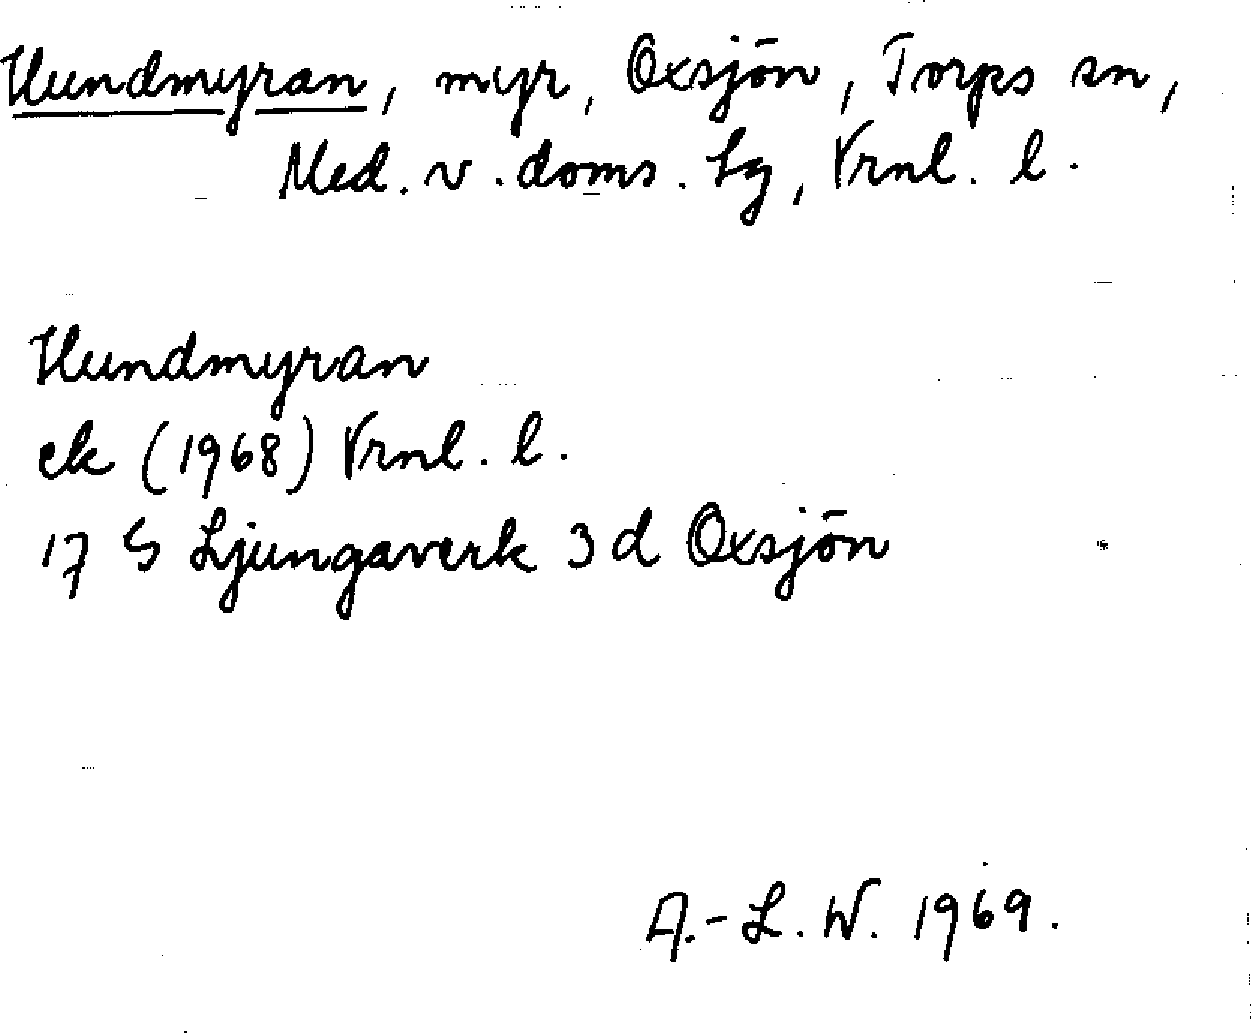 Hundmyran, myr, Oxsjön, Torps sn,
Med. v. doms. tg, Vrnl. l.
Hundmyran
ek (1968) Vrnl. l.
17 G Ljungaverk 3 d Oxsjön
A.-L. W. 1969.